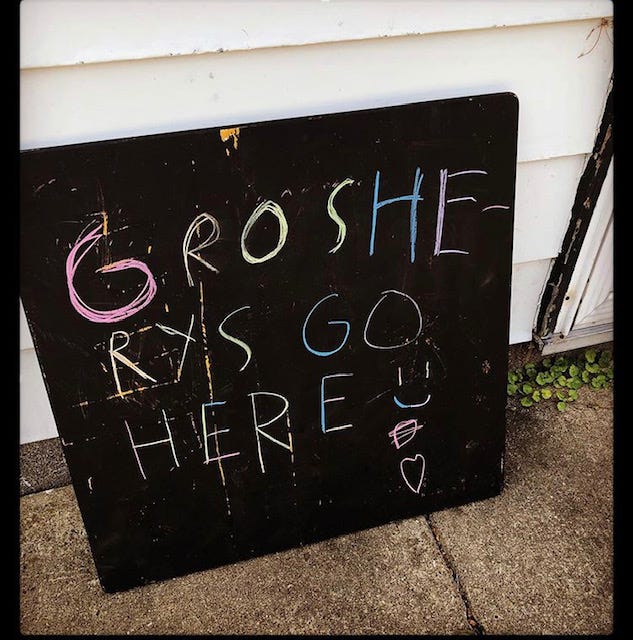 GROSHE-
RYS GO
HERE